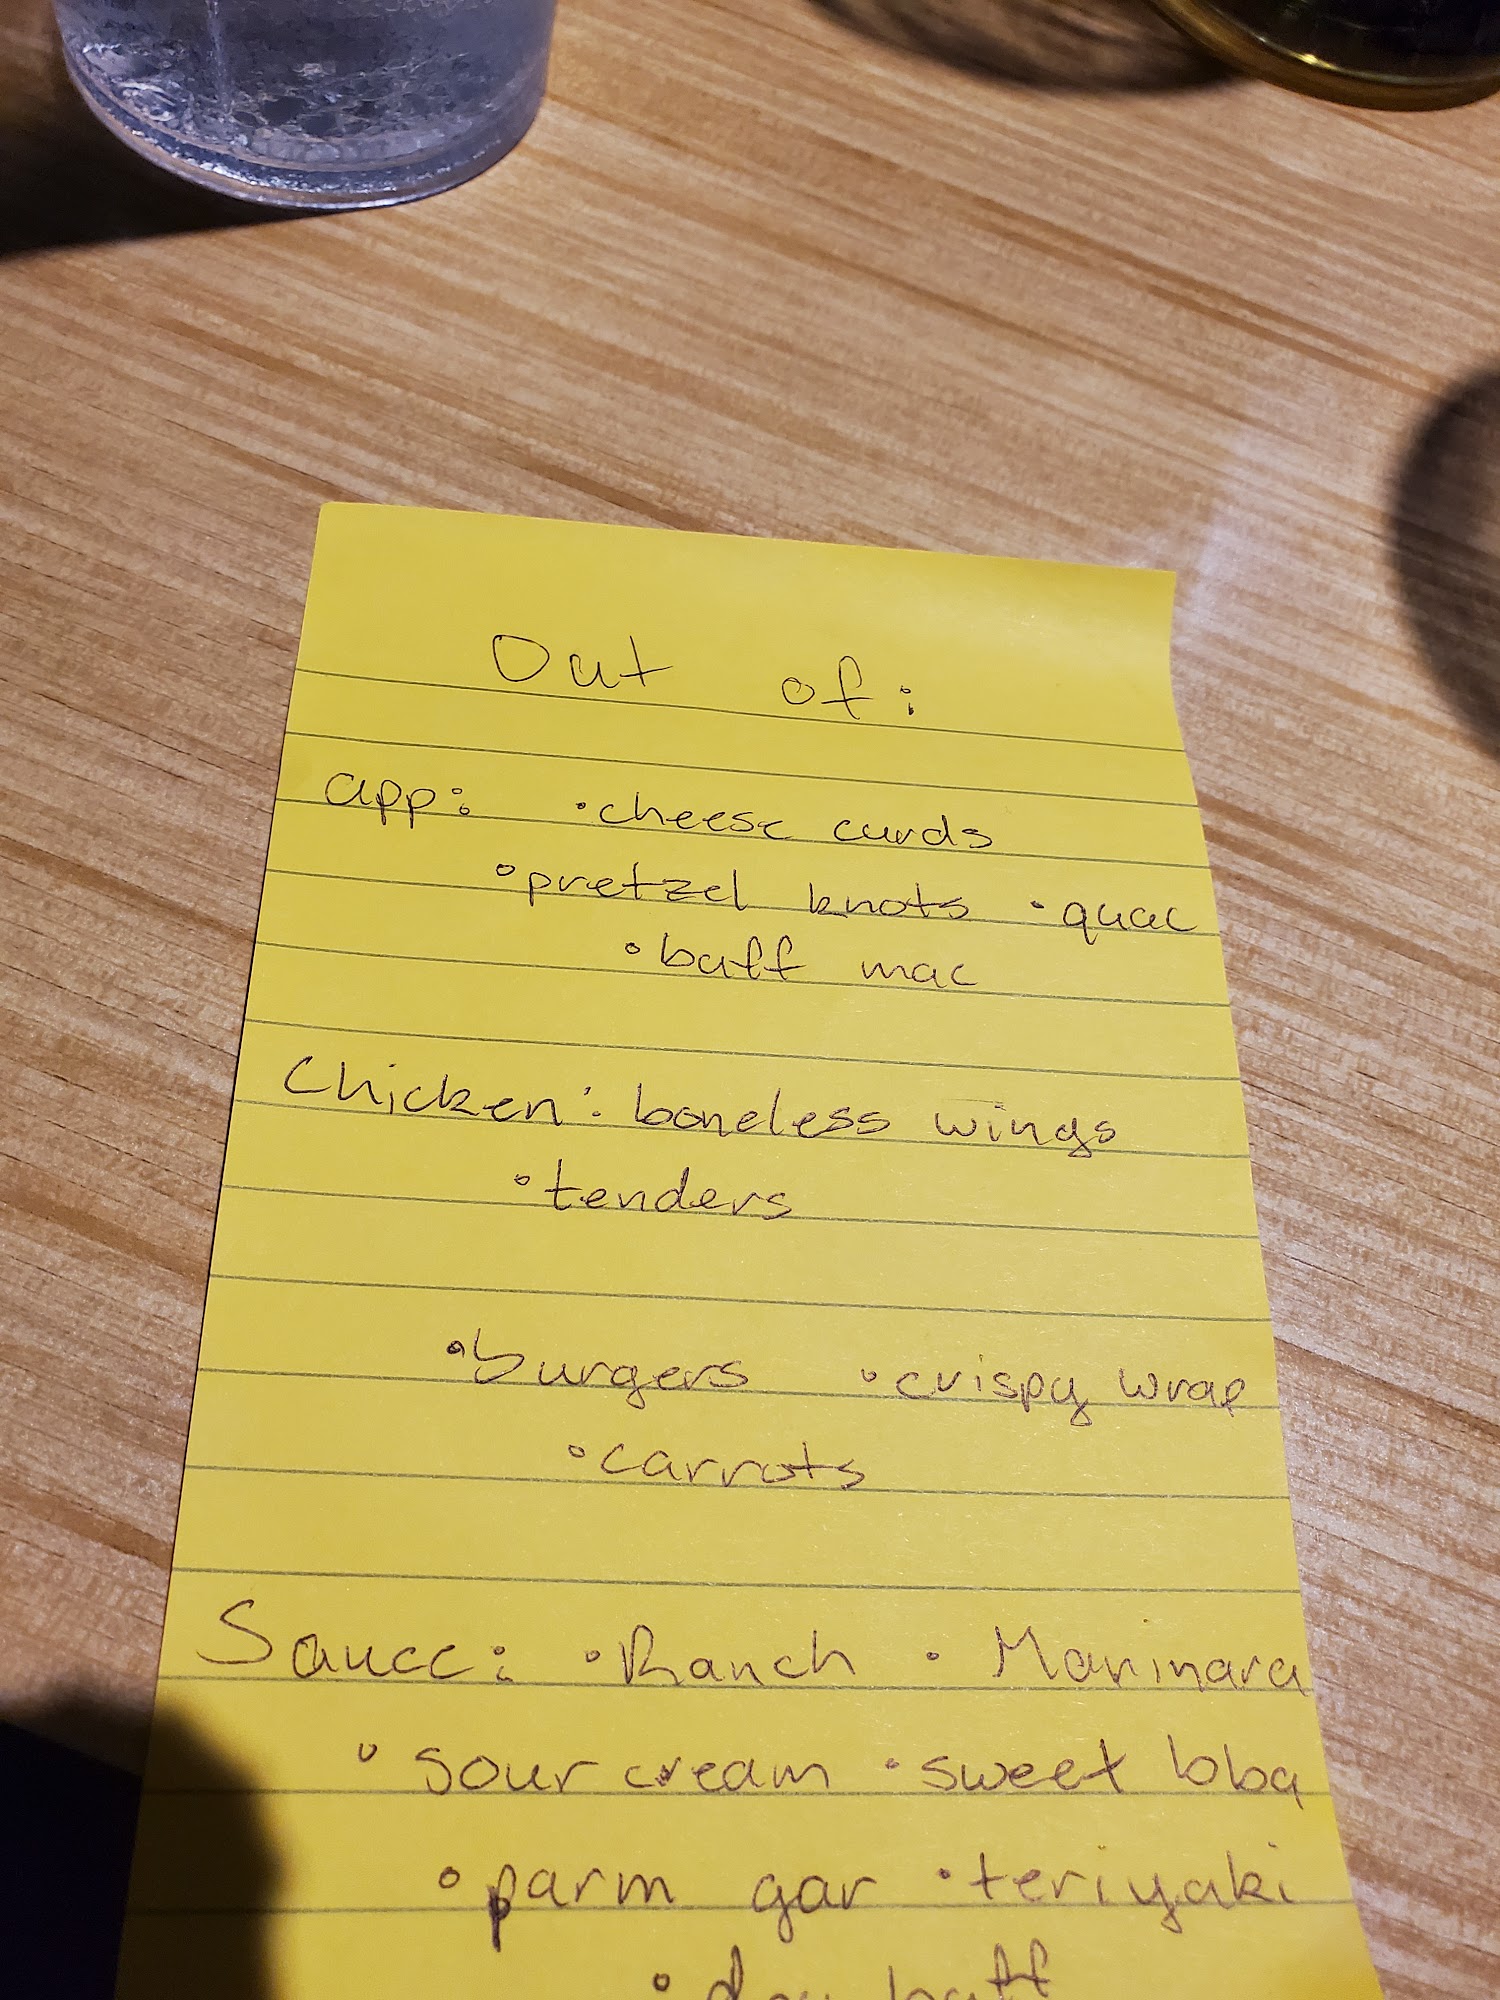 Out of:
app: •cheese curds
•pretzel knots •guac
•buff mac
Chicken: boneless wings
•tenders
•burgers •crispy wrap
•carrots
Sauce: •Ranch • Marinara
•sour cream •sweet bbq
•parm gar •teriyaki
•dry buff